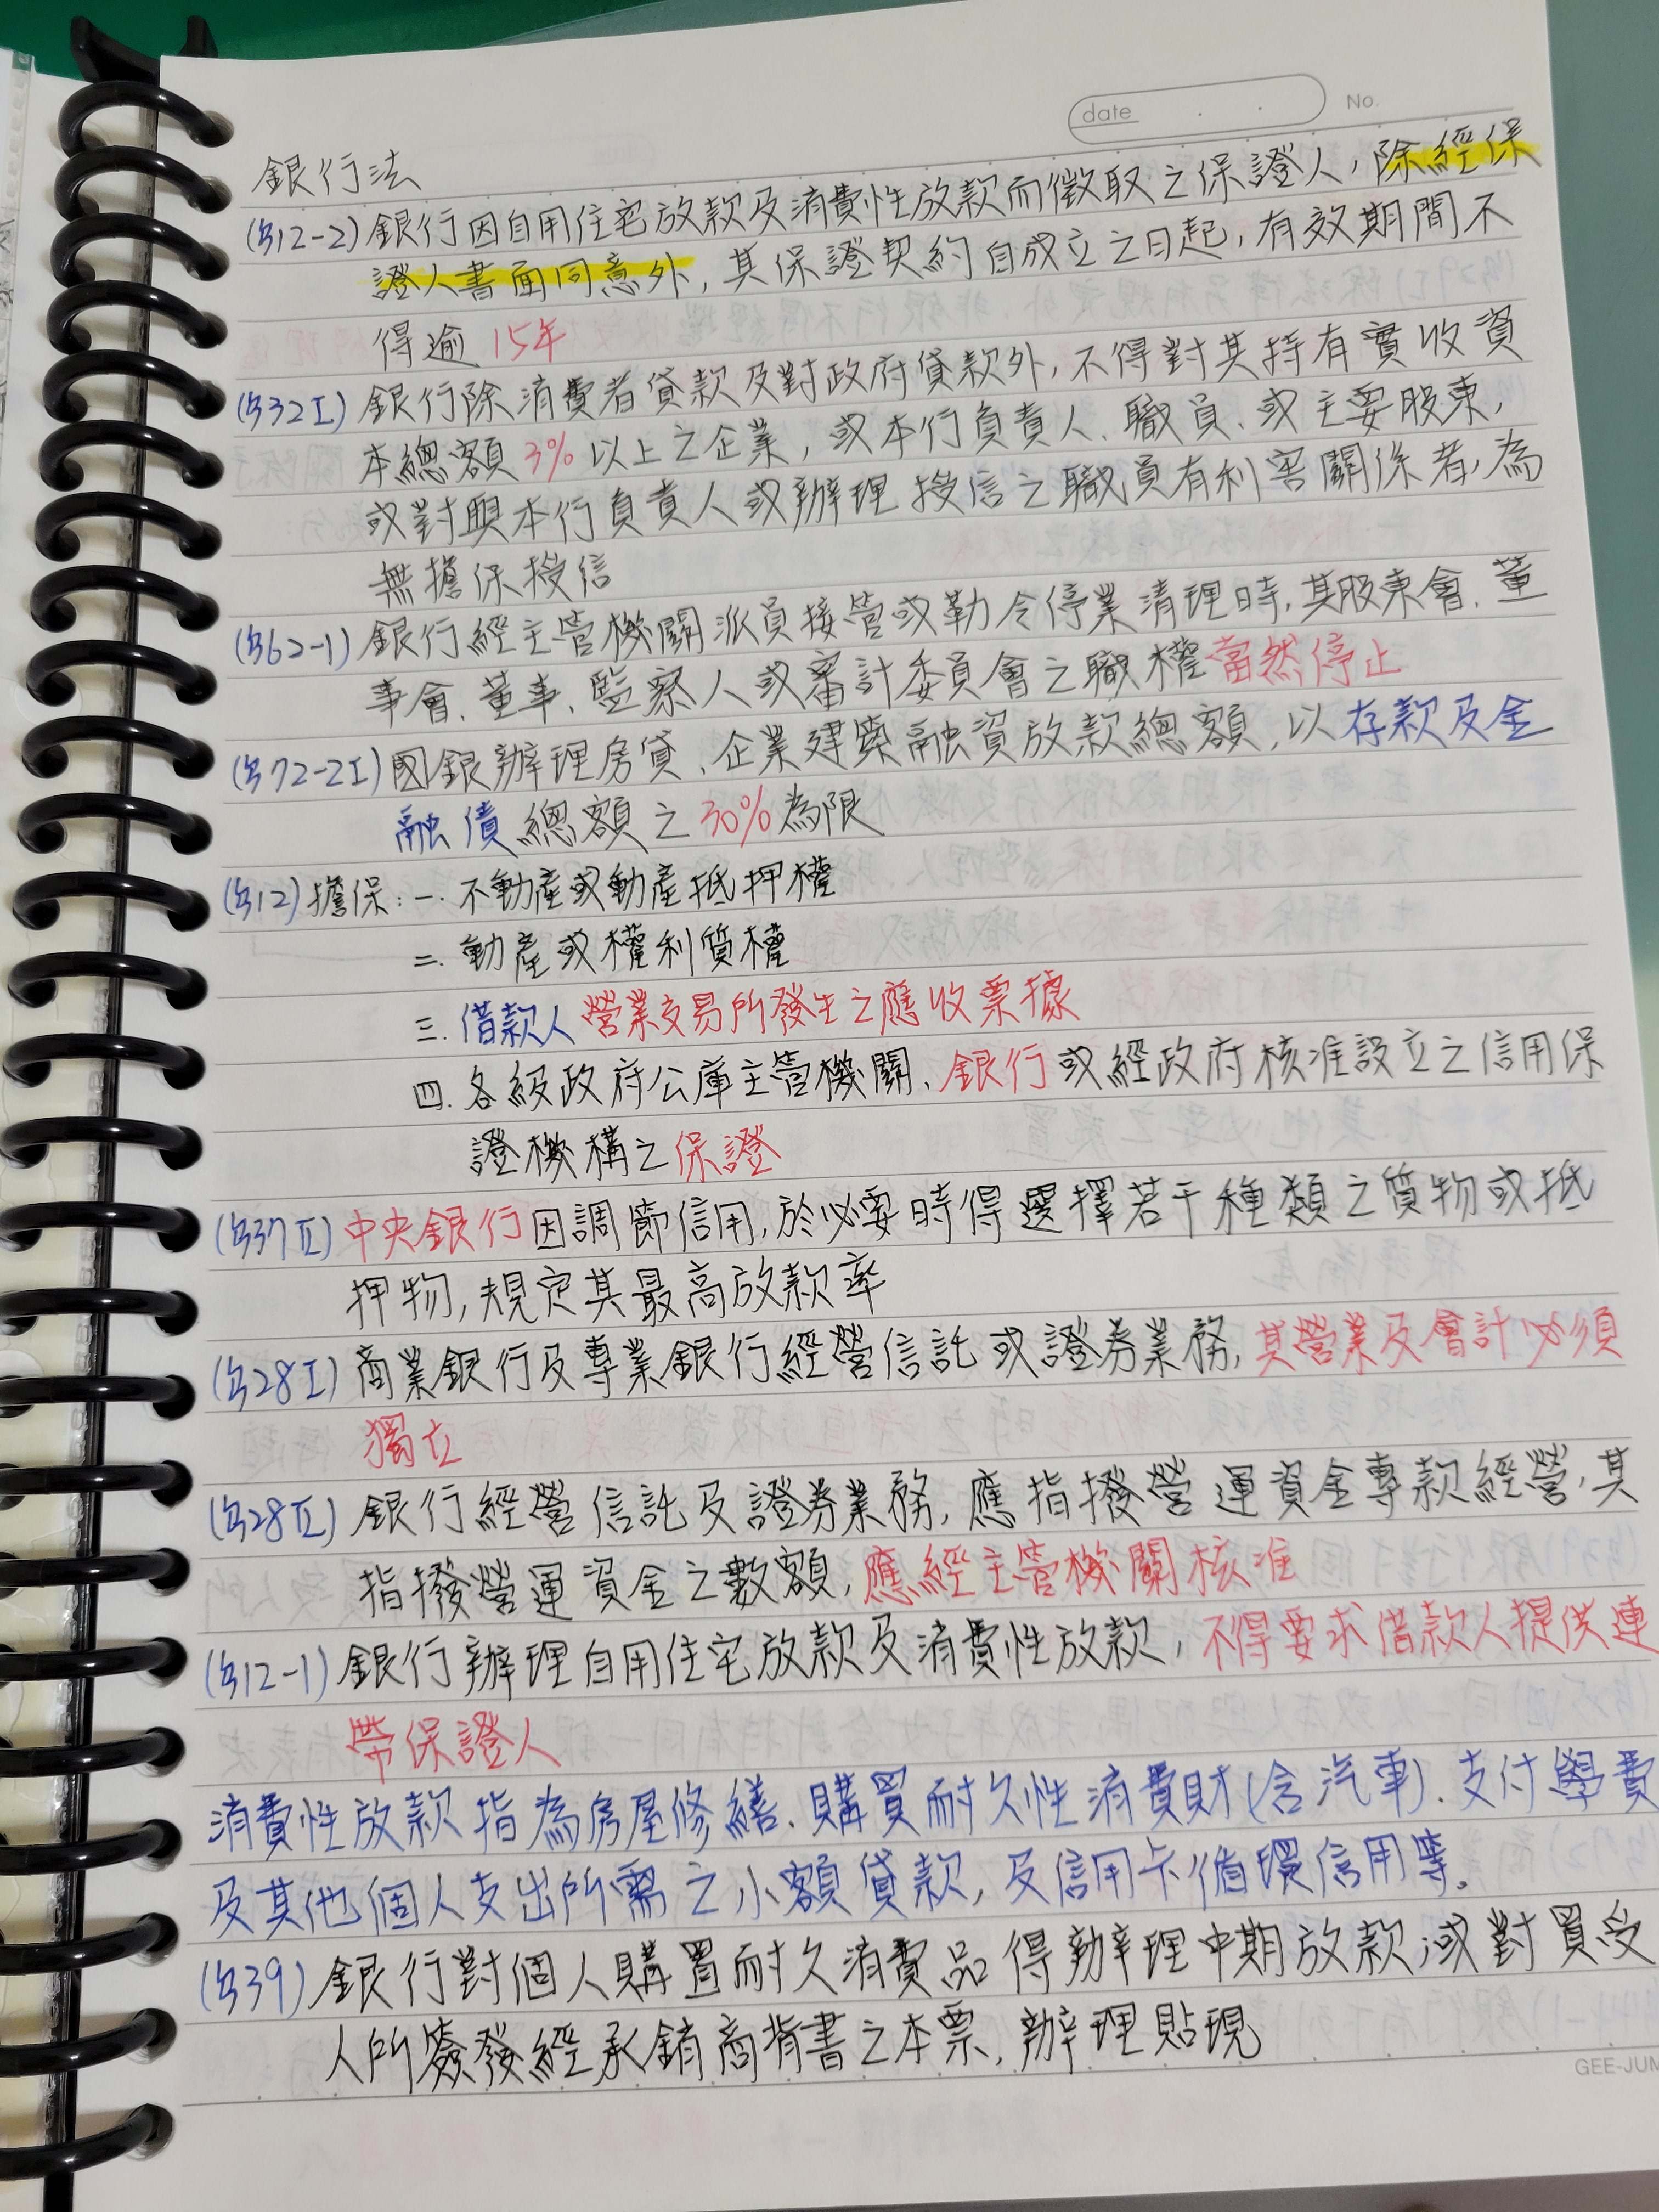 date . . No.
銀行法
(§12-2) 銀行因自用住宅放款及消費性放款而徵取之保證人，除經保
證人書面同意外，其保證契約自成立之日起，有效期間不
得逾 15年
(§32I) 銀行除消費者貸款及對政府貸款外，不得對其持有實收資
本總額 3% 以上之企業，或本行負責人、職員、或主要股東，
或對與本行負責人或辦理授信之職員有利害關係者，為
無擔保授信
(§62-1) 銀行經主管機關派員接管或勒令停業清理時，其股東會、董
事會、董事、監察人或審計委員會之職權當然停止
(§72-2I) 國銀辦理房貸、企業建築融資放款總額，以存款及金
融債總額之30%為限
(§12) 擔保：一. 不動產或動產抵押權
二. 動產或權利質權
三. 借款人營業交易所發生之應收票據
四. 各級政府公庫主管機關、銀行或經政府核准設立之信用保
證機構之保證
(§37Ⅱ) 中央銀行因調節信用，於必要時得選擇若干種類之質物或抵
押物，規定其最高放款率
(§28I) 商業銀行及專業銀行經營信託或證券業務，其營業及會計必須
獨立
(§28Ⅱ) 銀行經營信託及證券業務，應指撥營運資金專款經營，其
指撥營運資金之數額，應經主管機關核准
(§12-1) 銀行辦理自用住宅放款及消費性放款，不得要求借款人提供連
帶保證人
消費性放款指為房屋修繕、購買耐久性消費財(含汽車)、支付學費
及其他個人支出所需之小額貸款，及信用卡循環信用等。
(§39) 銀行對個人購置耐久消費品得辦理中期放款；或對買受
人所簽發經承銷商背書之本票，辦理貼現
GEE-JUN